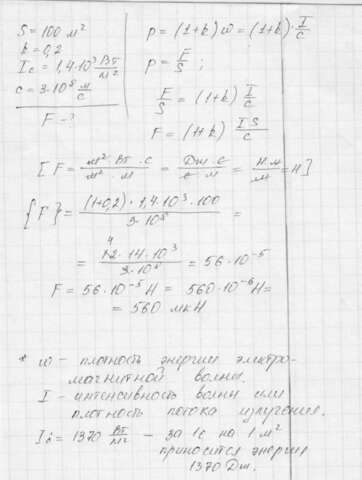 S = 100 м²
k = 0,2
Ic = 1,4·10³ Вт/м²
c = 3·10⁸ м/с
F - ?
p = (1+k) w = (1+k)· I/c
p = F/S ;
F/S = (1+k) I/c
F = (1+k) IS/c
[F = м²·Вт·с / м²·м = Дж·с / с·м = Н·м / м = Н]
{F} = (1+0,2)·1,4·10³·100 / 3·10⁸ =
= 12·14·10³ / 3·10⁸ = 56·10⁻⁵
4
F = 56·10⁻⁵ Н = 560·10⁻⁶ Н =
= 560 мкН
* w - плотность энергии электро-
магнитной волны.
I - интенсивность волны или
плотность потока излучения.
I = 1370 Вт/м² - за 1с на 1 м²
приносится энергия
1370 Дж.